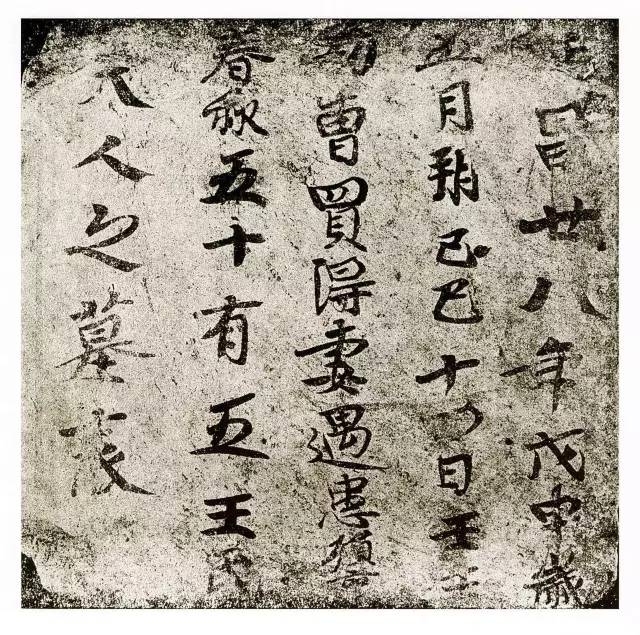 昌廿八年戊申歲
月朔己巳十日壬
曹買得妻遇患殞
春秋五十有五王氏
夫人之墓表